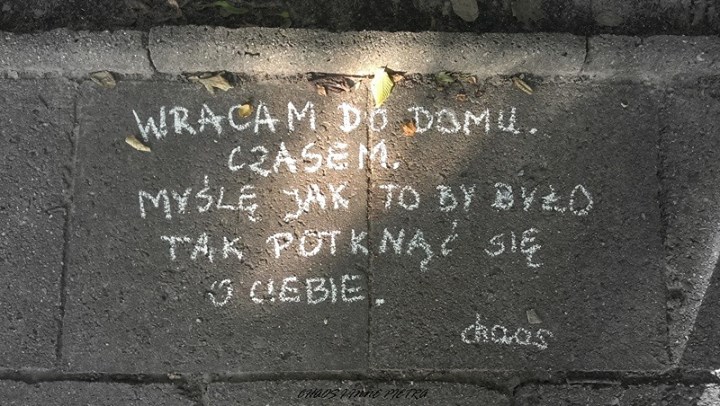 WRACAM DO DOMU.
CZASEM.
MYŚLĘ JAK TO BY BYŁO
TAK POTKNĄĆ SIĘ
O CIEBIE.
chaos
CHAOS VINNIE PIETRA